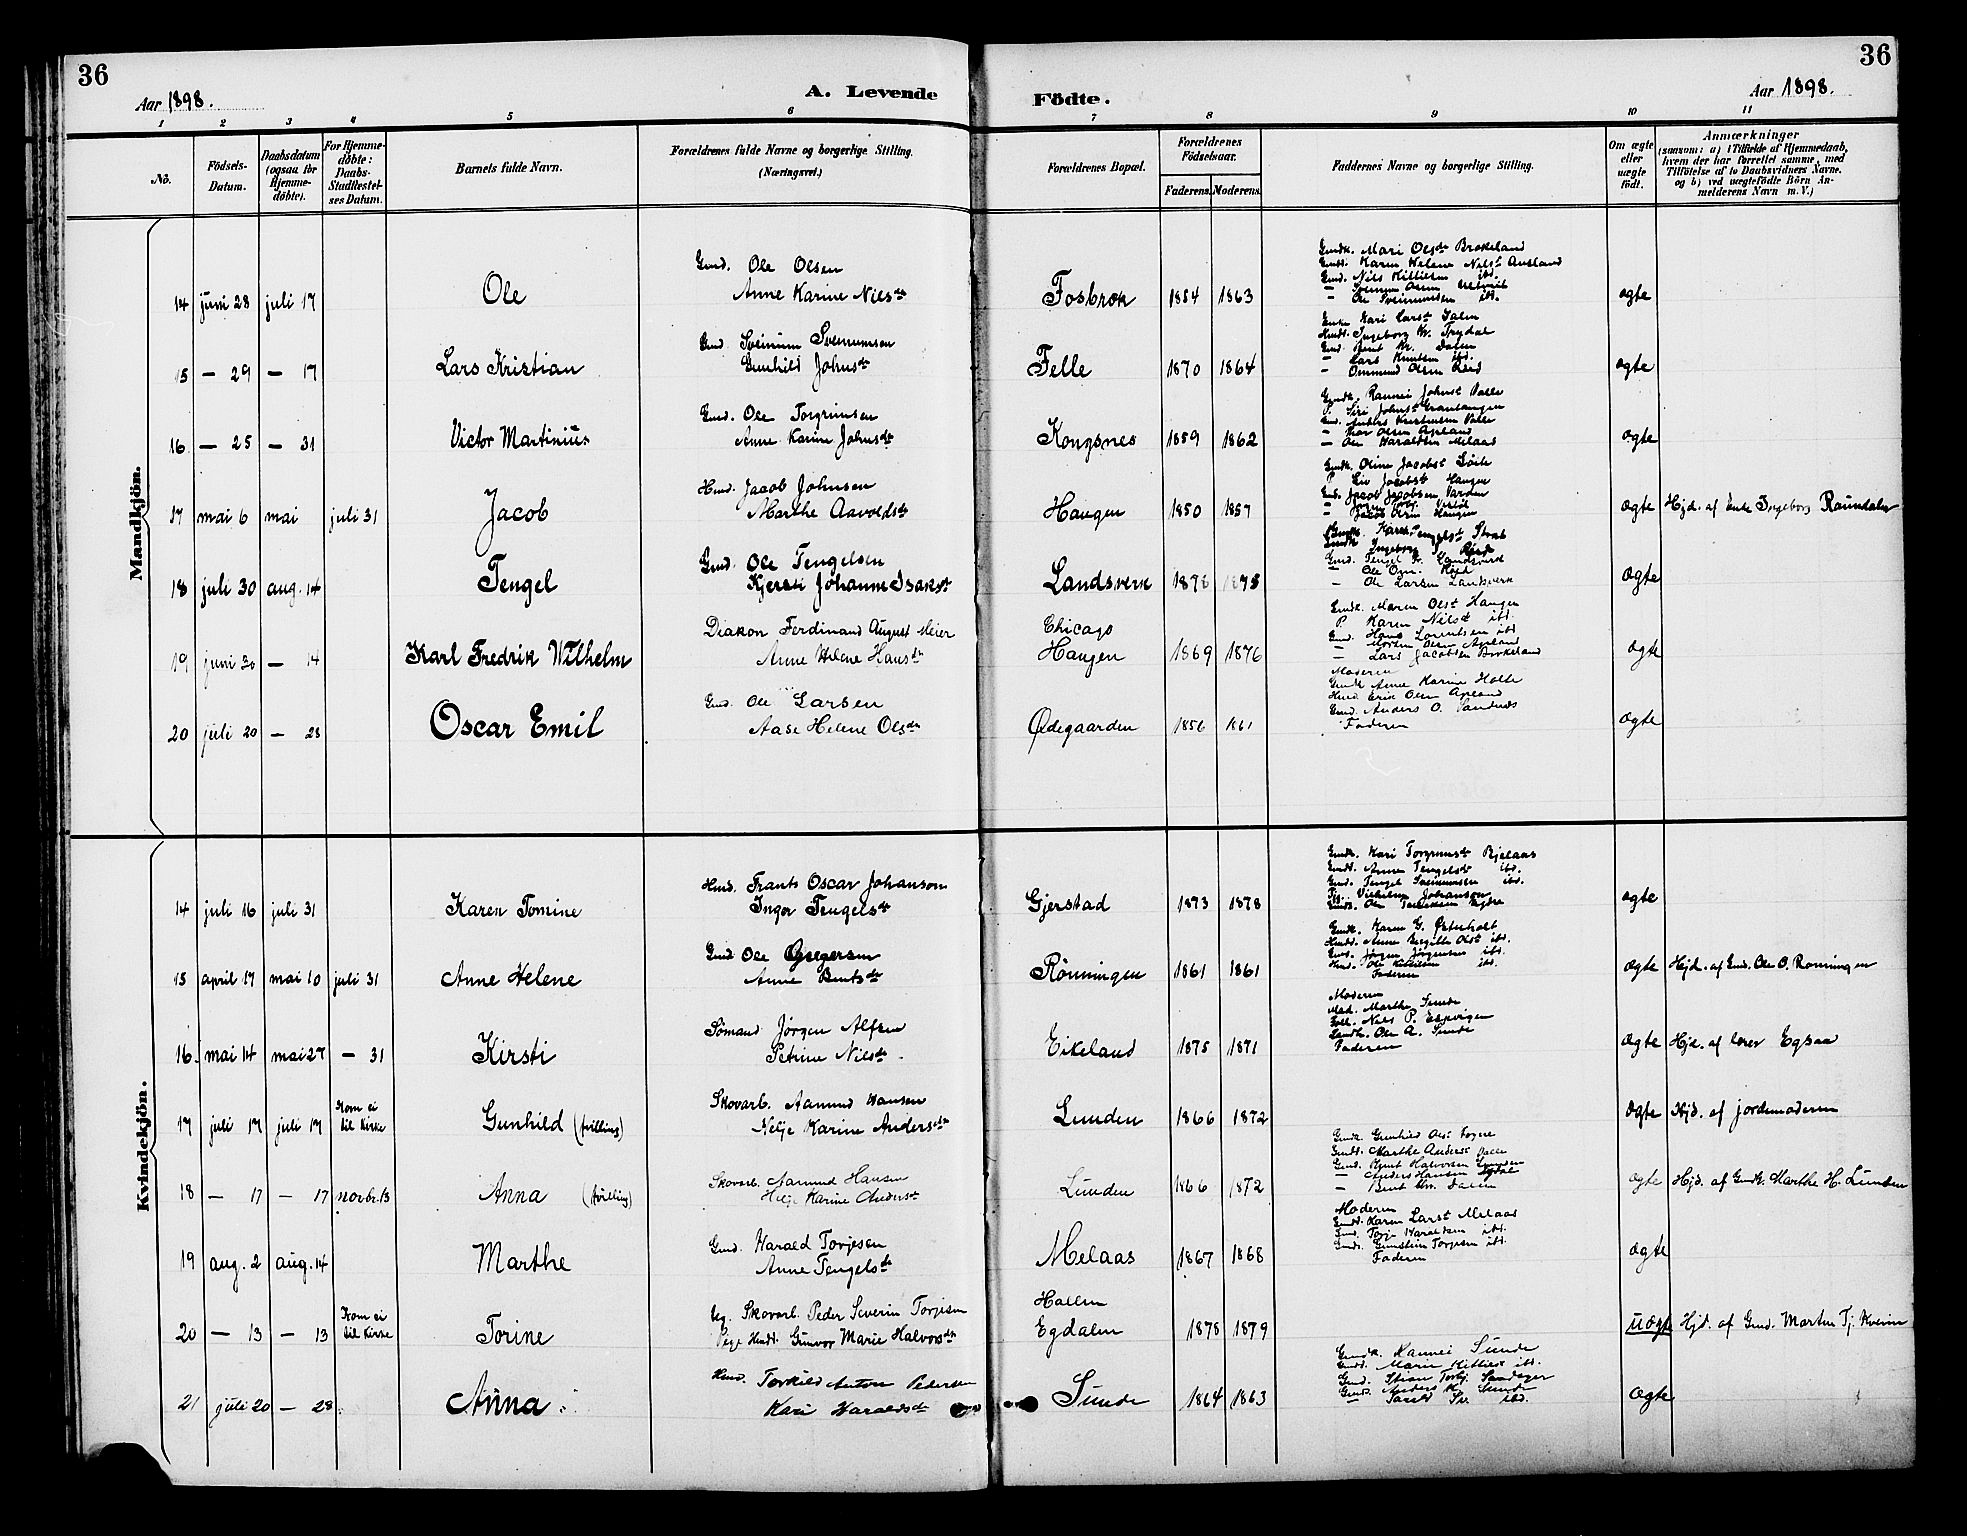 36
36
Aar 1898.
A. Levende Födte.
Aar 1898.
1 2 3 4 5 6 7 8 9 10 11
No.
Födsels-Datum.
Daabsdatum (ogsaa for Hjemmedöbte).
For Hjemmedöbte: Daabs-Stadfæstelses Datum.
Barnets fulde Navn.
Forældrenes fulde Navne og borgerlige Stilling. (Næringsvei.)
Forældrenes Bopæl.
Forældrenes Födselsaar.
Faderens. Moderens.
Faddernes Navne og borgerlige Stilling.
Om ægte eller uægte födt.
Anmærkninger (saasom: a) i Tilfælde af Hjemmedaab, hvem der har forrettet samme, med Tilföielse af to Daabsvidners Navne, og b) ved uægtefödte Börn Anmelderens Navn m. V.)
Mandkjön.
14 juni 28 juli 17 Ole
Gmd. Ole Olsen
Anne Karine Nilsdr
Fosbrok 1854 1863
Gmdk. Mari Olsdr Brokeland
Gmdd. Karen Helene Nilsdr Ausland
Gmd. Nils Kittilsen ibd.
ægte
15 — 29 — 17 Lars Kristian
Gmd. Sveinum Sveinumsen
Gunhild Johnsdr
Felle 1870 1864
Enke Kari Larsdr Dalen
Husdt. Ingeborg Kr. Trydal
Gmd. Bent Kr. Dalen
— Lars Knutsen ibd.
— Ommund Olsen
ægte
16 — 25 — 31 Victor Martinius
Gmd. Ole Torgrimsen
Anne Karine Johnsdr
Kongsnes 1859 1862
Gmdk. Rannei Johnsdr Valle
P. Siri Johnsdr
Gmd. Anders Kristensen Valle
— Thor Olsen Apland
— Ole Haraldsen Melaas
ægte
17 mai 6 mai juli 31 Jacob
Husd. Jacob Johnsen
Marthe Aavoldsdr
Haugen 1850 1857
Gmdk. Oline Jacobsdr
P. Liv Jacobsdr Haugen
Gmd. Jacob Jacobsen
— Jacob Olsen Haugen
ægte Hjd. af Enke Ingeborg Raundalen
18 juli 30 aug. 14 Tengel
Gmd. Ole Tengelsen
Kjersti Johanne Isaksdr
Landsverk 1876 1875
— Ole Larsen Landsverk
ægte
19 juni 30 — 14 Karl Fredrik Wilhelm
Diakon Ferdinand August Meier
Anne Helene Hansdr
Chicago
Haugen 1869 1876
Gmdk. Maren Olsdr Haugen
P Karen Nilsdr ibd.
Gmd. Hans Lorentsen ibd
— Morten Olsen Apland
— Lars Jacobsen Brokeland
ægte
20 juli 20 — 28 Oscar Emil
Gmd. Ole Larsen
Aase Helene Olsdr
Ødegaarden 1856 1861
Moderen
Gmdk Anne Karine Holte
Husd. Erik Olsen Apland
Gmd. Anders O.
Faderen
ægte
Kvindekjön.
14 juli 16 juli 31 Karen Tomine
Husd. Frants Oscar Johanson
Inger Tengelsdr
Gjerstad 1873 1878
Gmdk. Kari Torgrimsdr
Gmdd. Anne Tengelsdr ibd.
Gmd. Tengel Sveinumsen ibd.
ægte
15 april 17 mai 10 juli 31 Anne Helene
Gmd Ole Gregersen
Anne Bentsdr
Rönningen 1861 1861
Gmdk. Karen G. Østerholt
Husdt. Anne Birgitte Olsdr ibd.
Gmd. Jørgen Jørgensen ibd.
Husd. Ole Kittilsen ibd.
Faderen
ægte Hjd. af Gmd. Ole O. Ronningen
16. mai 14 mai 27 — 31 Kirsti
Sömand Jörgen Alfsen
Petrine Nilsdr.
Eikeland 1875 1871
Moderen
Mad. Marthe Sunde
Nils P. Espevigen
Landh. Ole A. Sunde
Faderen
ægte Hjd. af lærer Egsaa
17 juli 17 juli 17 Kom ei til Kirke Gunhild (tvilling)
Skovarb. Aamund Hansen
Helje Karine Andersdr
Lunden 1866 1872
ægte Hjd. af jordemoderen
18 — 17 — 17 novbr. 13 Anna (tvilling)
Skovarb. Aamund Hansen
Helje Karine Andersdr
Lunden 1866 1872
Gmdk. Gunhild Olsdr
Gmdd. Marthe Andersdr Dalen
Gmd. Knut Halvorsen Lunden
— Anders Hansen
— Bent Kr. Dalen
ægte Hjd. af Gmdk. Marthe H. Lunden
19 aug. 2 aug. 14 Marthe
Gmd. Harald Torjesen
Anne Tengelsdr
Melaas 1867 1868
Moderen
Gmdd. Karen Larsdr Melaas
Gmd. Torje Haraldsen ibd.
Gmds. Gunstein Torjesen ibd.
Faderen
ægte
20 — 13 — 13 Kom ei til Kirke Torine
Ug. Skovarb. Peder Severin Torjesen
Pige Husdt. Gunvor Marie Halvorsdr
Hallen
Egdalen 1878 1879
uægte Hjd. af Gmd. Morten Tj. Kveim
21 juli 20 — 28. Anna
Husd. Torkild Anton Pedersen
Kari Haraldsdr
Sunde 1864 1863
Gmdk. Hannei Sunde
Gmdd. Marie Kittilsdr ibd.
Gmds. Anders K. Sunde
ægte